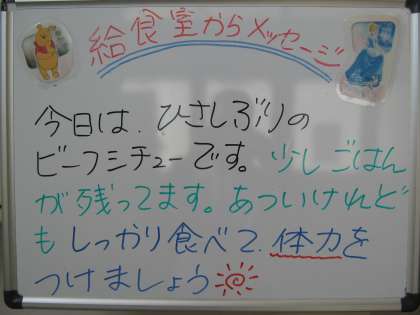 給食室からメッセージ
今日は、ひさしぶりの
ビーフシチューです。少しごはん
が残ってます。あついけれど
もしっかり食べて、体力を
つけましょう